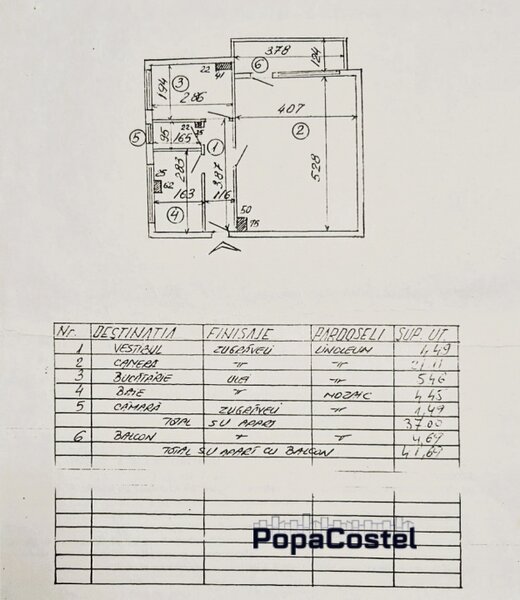 3.78
124
6
22
41
3
194
286
407
2
5
95
22
165
1
283
3.87
528
62
163
116
4
50
75
Nr. DESTINATIA FINISAJE PARDOSELI SUP. UT.
1 VESTIBUL ZUGRĂVELI LINOLEUM 4,49
2 CAMERĂ -"- -"-
3 BUCĂTĂRIE ULEI -"- 5,46
4 BAIE -"- MOZAIC 4,45
5 CĂMARĂ ZUGRĂVELI -"- 1,49
TOTAL SU APART 37,00
6 BALCON -"- -"- 4,69
TOTAL SU APART CU BALCON 41,69
PopaCostel